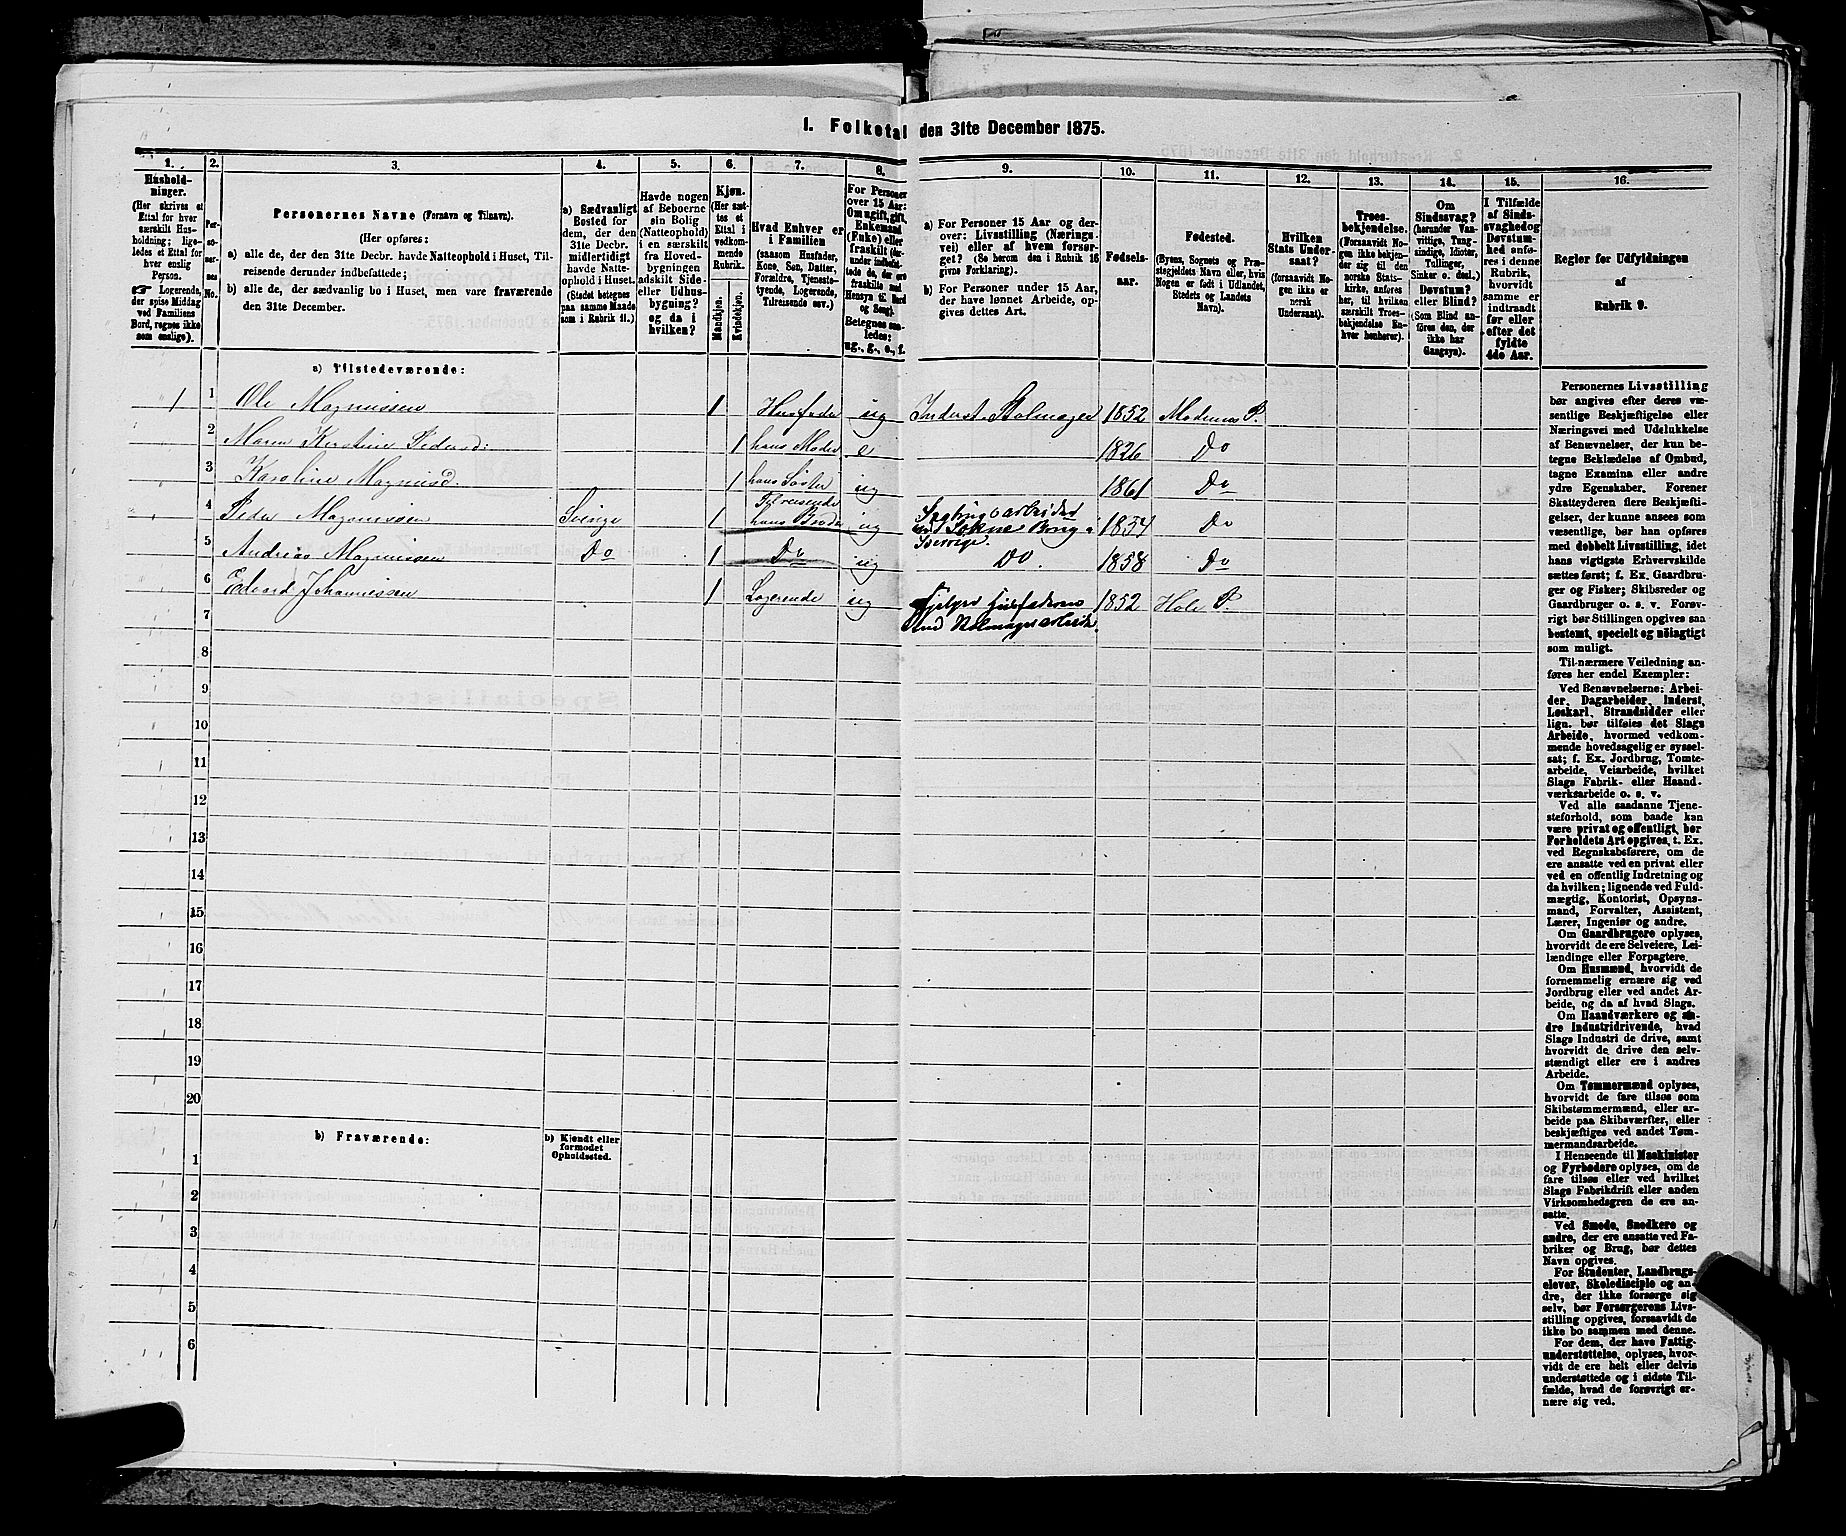 1. Folketal den 31te December 1875.
1. 2. 3. 4. 5. 6. 7. 8. 9. 10. 11. 12. 13. 14. 15. 16.
Hushold-
ninger.
(Her skrives et
Ettal for hver
særskilt Hus-
holdning; lige-
ledes et Ettal for
hver enslig
Person.
☞ Logerende,
der spise Middag
ved Familiens
Bord, regnes ikke
som enslige).
Per-
so-
ner-
nes
No.
Personernes Navne (Fornavn og Tilnavn).
(Her opføres:
a) alle de, der den 31te Decbr. havde Natteophold i Huset, Til-
reisende derunder indbefattede;
b) alle de, der sædvanlig bo i Huset, men vare fraværende
den 31te December.
a) Sædvanligt
Bosted for
dem, der den
31te Decbr.
midlertidigt
havde Natte-
ophold i Huset.
(Stedet betegnes
paa samme Maade
som i Rubrik 11.)
Havde nogen
af Beboerne
sin Bolig
(Natteophold)
i en særskilt
fra Hoved-
bygningen
adskilt Side-
eller Udhus-
bygning?
og da i
hvilken?
Kjøn.
(Her sæt-
tes et
Ettal i
vedkom-
mende
Rubrik.
Mandkjøn.
Kvindekjøn.
Hvad Enhver er
i Familien
(saasom Husfader,
Kone, Søn, Datter,
Forældre, Tjeneste-
tyende, Logerende,
Tilreisende osv.)
For Personer
over 15 Aar:
Om ugift, gift,
Enkemand
(Enke) eller
fraskilt
Hensyn til Bord
og Seng).
Betegnes saa-
ledes:
ug., g., e., f.
a) For Personer 15 Aar og der-
over: Livsstilling (Nærings-
vei) eller af hvem forsør-
get? (Se herom den i Rubrik 16
givne Forklaring).
b) For Personer under 15 Aar,
der have lønnet Arbeide, op-
gives dettes Art.
Fødsels-
aar.
Fødested.
(Byens, Sognets og Præ-
stegjeldets Navn eller, hvis
Nogen er født i Udlandet,
Stedets og Landets
Navn).
Hvilken
Stats Under-
saat?
(forsaavidt No-
gen ikke er
norsk
Undersaat).
Troes-
bekjendelse.
(Forsaavidt No-
gen ikke bekjen-
der sig til den
norske Stats-
kirke, anføres
her, til hvilken
særskilt Troes-
bekjendelse En-
hver henhører).
Om
Sindssvag?
(herunder Vaa-
vittige, Tung-
sindige, Idioter,
Tullinger,
Sinker o. desl.)
Døvstum?
eller Blind?
(Som Blind an-
føres den, der
ikke har
Gangsyn).
I Tilfælde
af Sinds-
svaghed og
Døvstum-
hed anfø-
res i denne
Rubrik,
hvorvidt
samme er
indtraadt
før eller
efter det
fyldte
4de Aar.
Regler for Udfyldningen
af
Rubrik 9.
a) Tilstedeværende:
1 1 Ole Magnussen 1 Husfader ug Inderst Rolmager 1852 Modums P.
2 Maren Kerstine Pedersd: 1 hans Moder e 1826 Do
3 Karoline Magnusd. 1 hans Søster ug 1861 Do
4 Peder Magnussen Sverige 1 Tilreisende
hans Broder ug Sagbrugsarbeider
Brug i
Sverige. 1854 Do
5 Andreas Magnussen Do 1 Do ug Do. 1858 Do
6 Edvard Johannessen 1 Logerende ug Hjelper Husfaderen
ved Rolmagerarbeide. 1852 Hole P.
7
8
9
10
11
12
13
14
15
16
17
18
19
20
b) Fraværende:
b) Kjendt eller
formodet
Opholdssted.
1
2
3
4
5
6
Personernes Livsstilling
bør angives efter deres væ-
sentlige Beskjæftigelse eller
Næringsvei med Udelukkelse
af Benævnelser, der kun be-
tegne Beklædelse af Ombud,
tagne Examina eller andre
ydre Egenskaber. Forener
Skatteyderen flere Beskjæfti-
gelser, der kunne ansees som
væsentlige, bør han opføres
med dobbelt Livsstilling, idet
hans vigtigste Erhvervskilde
sættes først; f. Ex. Gaardbru-
ger og Fisker; Skibsreder og
Gaardbruger o. s. v. Forøv-
rigt bør Stillingen opgives saa
bestemt, specielt og nøiagtigt
som muligt.
Til nærmere Veiledning an-
føres her endel Exempler:
Ved Benævnelserne: Arbei-
der, Dagarbeider, Inderst,
Løskarl, Strandsidder eller
lign. bør tilføies det Slags
Arbeide, hvormed vedkom-
mende hovedsagelig er syssel-
sat; f. Ex. Jordbrug, Tomte-
arbeide, Veiarbeide, hvilket
Slags Fabrik- eller Haand-
værksarbeide o. s. v.
Ved alle saadanne Tjene-
steforhold, som baade kan
være privat og offentligt, bør
Forholdets Art opgives, f. Ex.
ved Regnskabsførere, om de
ere ansatte ved en privat eller
ved en offentlig Indretning og
da hvilken; lignende ved Fuld-
mægtig, Kontorist, Opsyns-
mand, Forvalter, Assistent,
Lærer, Ingeniør og andre.
Om Gaardbrugere oplyses,
hvorvidt de ere Selveiere, Lei-
lændinge eller Forpagtere.
Om Husmænd, hvorvidt de
fornemmelig ernære sig ved
Jordbrug eller ved andet Ar-
beide, og da af hvad Slags.
Om Haandværkere og an-
dre Industridrivende, hvad
Slags Industri de drive, samt
hvorvidt de drive den selv-
stændigt eller ere i andres
Arbeide.
Om Tømmermænd oplyses,
hvorvidt de fare tilsøs som
Skibstømmermænd, eller ar-
beide paa Skibsværfter, eller
beskjæftiges ved andet Tøm-
mermandsarbeide.
I Henseende til Maskinister
og Fyrbødere oplyses, om de
fare tilsøs eller ved hvilket
Slags Fabrikdrift eller anden
Virksomhedsgren de ere an-
satte.
Ved Smede, Snedkere og
andre, der ere ansatte ved Fa-
briker og Brug, bør dettes
Navn opgives.
For Studenter, Landbrugs-
elever, Skoledisciple og an-
dre, der ikke forsørge sig
selv, bør Forsørgerens Livs-
stilling opgives, forsaavidt de
ikke bo sammen med denne.
For dem, der have Fattig-
understøttelse, oplyses, hvor-
vidt de ere helt eller delvis
understøttede og i sidste Til-
fælde, hvad de forøvrigt er-
nære sig ved.